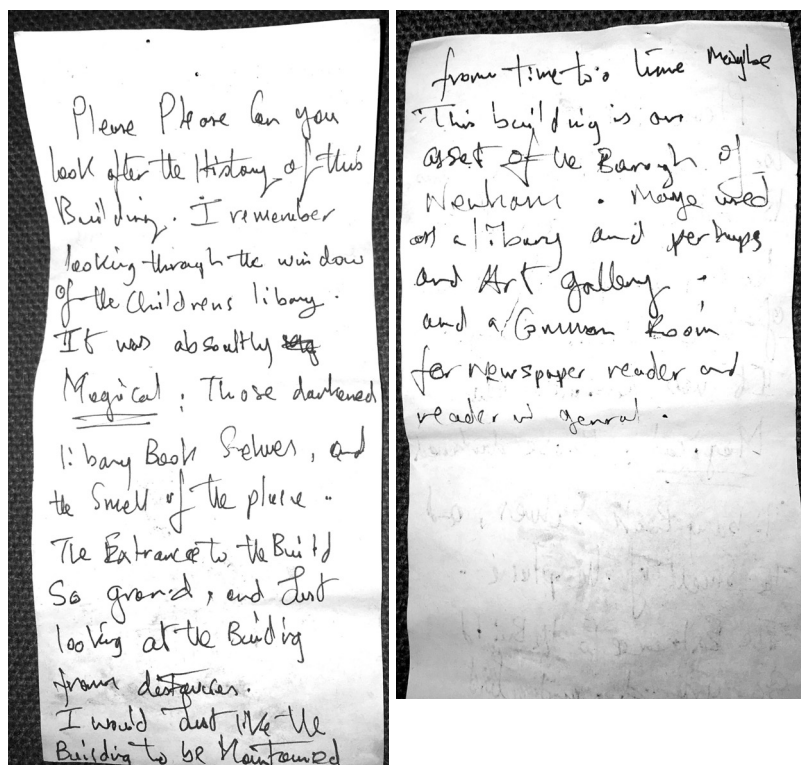 Please Please Can you
look after the History of this
Building. I remember
looking through the window
of the Childrens libary.
It was absoultly
Magical; Those darkened
libary Book Selves, and
the Smell of the place ..
The Entrance to the Build
So grand, and Just
looking at the Building
from
I would Just like the
Building to be Maintained
from time to time Maybe
This building is an
asset of the Borogh of
Newham. Maye used
as a libary and perhaps
and Art gallery.
and a Common Room
for Newspaper reader and
reader in genral.